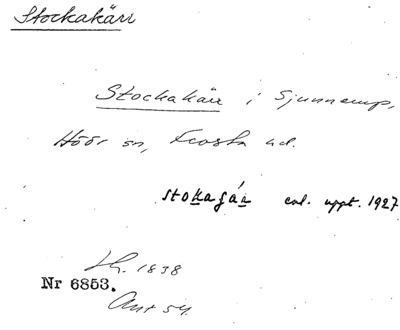 Stockakärr
Stockakärr i Sjunnerup,
Höör sn, Frosta hd.
stokagár enl. uppt. 1927
1838
Nr 6853.
54